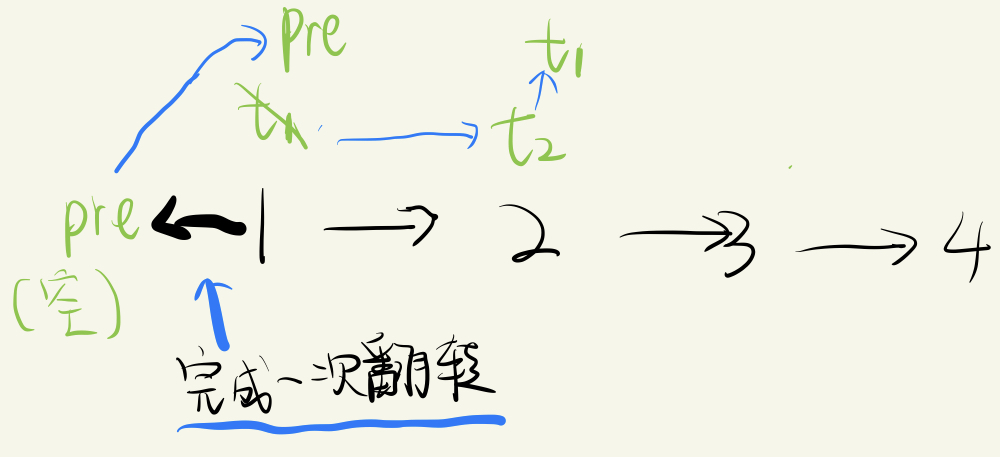 pre t1
t1 t2
pre 1 2 3 4
(空)
完成一次翻转